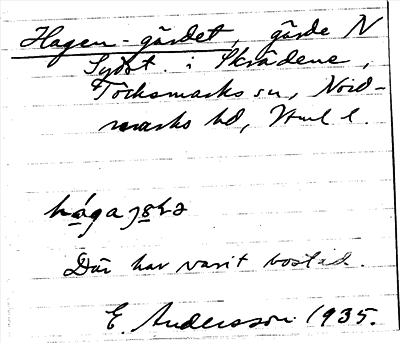 Hagen-gärdet, gärde N
Sydöt. i Skrädene,
Töcksmarks sn, Nord-
marks hd, Vml l.
Där har varit bostad.
E. Andersson 1935.